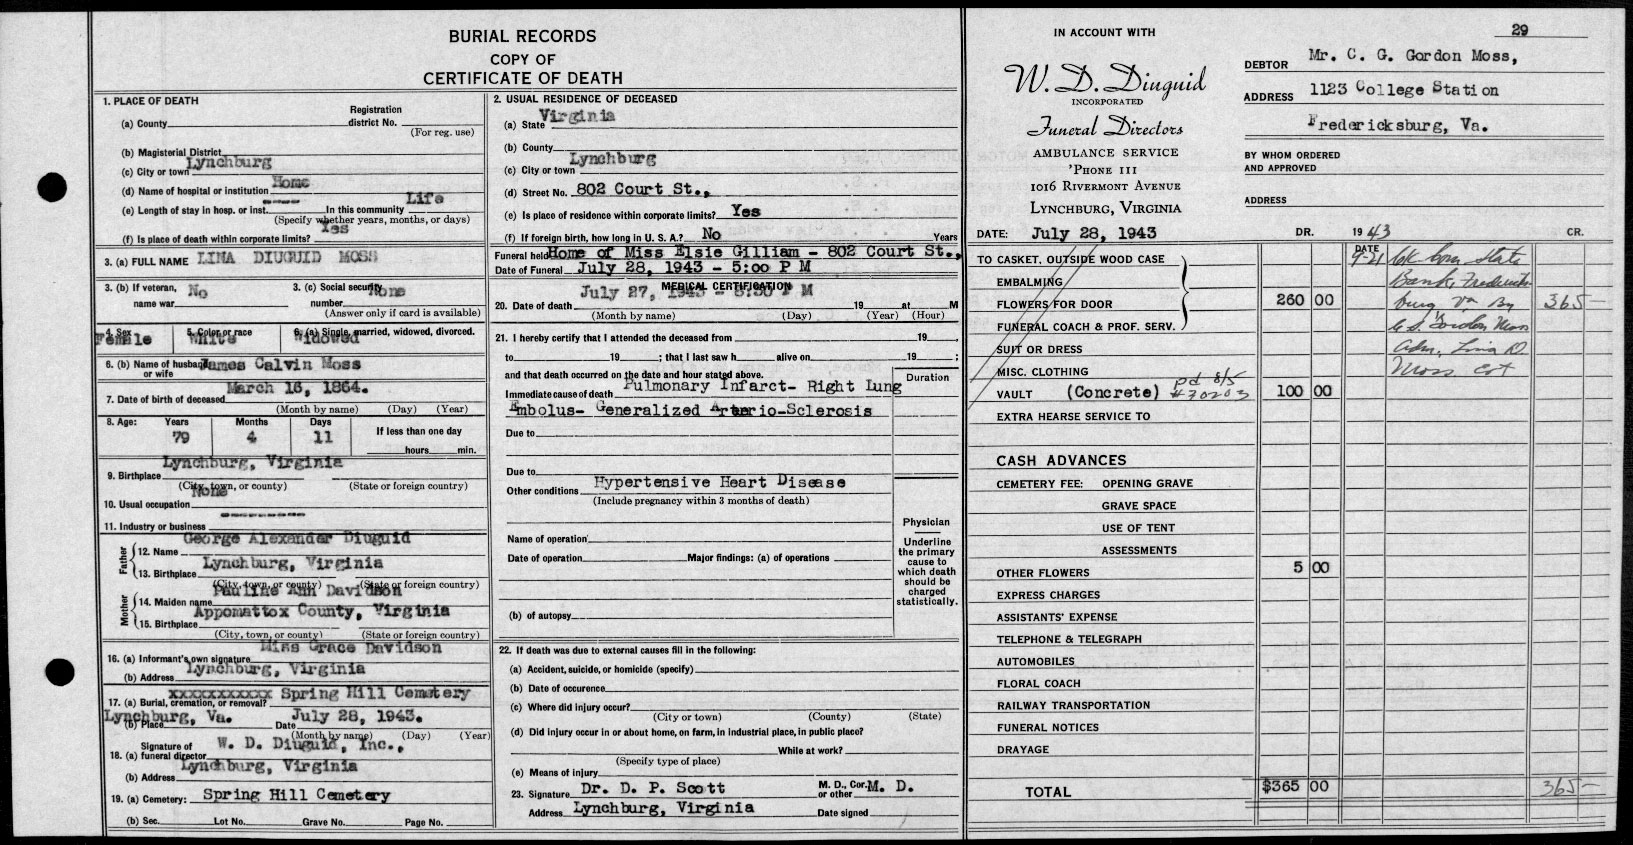 BURIAL RECORDS
COPY OF
CERTIFICATE OF DEATH
1. PLACE OF DEATH
(a) County
Registration district No.
(For reg. use)
(b) Magisterial District
(c) City or town Lynchburg
(d) Name of hospital or institution Home
(e) Length of stay in hosp. or inst. ----- In this community Life
(Specify whether years, months, or days)
(f) Is place of death within corporate limits? Yes
3. (a) FULL NAME LINA DIUGUID MOSS
3. (b) If veteran, name war No
3. (c) Social security number None
(Answer only if card is available)
4. Sex Female
5. Color or race White
6. (a) Single, married, widowed, divorced. Widowed
6. (b) Name of husband or wife James Calvin Moss
7. Date of birth of deceased March 16, 1864.
(Month by name) (Day) (Year)
8. Age: Years 79 Months 4 Days 11
If less than one day
hours min.
9. Birthplace Lynchburg, Virginia
(City, town, or county) (State or foreign country)
10. Usual occupation None
11. Industry or business ---------
Father
12. Name George Alexander Diuguid
13. Birthplace Lynchburg, Virginia
(City, town, or county) (State or foreign country)
Mother
14. Maiden name Pauline Ann Davidson
15. Birthplace Appomattox County, Virginia
(City, town, or county) (State or foreign country)
16. (a) Informant's own signature Miss Grace Davidson
(b) Address Lynchburg, Virginia
17. (a) Burial, cremation, or removal? xxxxxxxxxxx Spring Hill Cemetery
(b) Place Lynchburg, Va. Date July 28, 1943.
(Month by name) (Day) (Year)
18. (a) Signature of funeral director W. D. Diuguid, Inc.,
(b) Address Lynchburg, Virginia
19. (a) Cemetery: Spring Hill Cemetery
(b) Sec. Lot No. Grave No. Page No.
2. USUAL RESIDENCE OF DECEASED
(a) State Virginia
(b) County
(c) City or town Lynchburg
(d) Street No. 802 Court St.,
(e) Is place of residence within corporate limits? Yes
(f) If foreign birth, how long in U. S. A.? No Years
Funeral held Home of Miss Elsie Gilliam - 802 Court St.,
Date of Funeral July 28, 1943 - 5:00 P M
MEDICAL CERTIFICATION
20. Date of death July 27, 1943 - 8:30 P M 19 at M
(Month by name) (Day) (Year) (Hour)
21. I hereby certify that I attended the deceased from 19 ,
to 19 ; that I last saw h alive on 19 ;
and that death occurred on the date and hour stated above.
Duration
Immediate cause of death Pulmonary Infarct- Right Lung
Embolus- Generalized Arterio-Sclerosis
Due to
Due to
Other conditions Hypertensive Heart Disease
(Include pregnancy within 3 months of death)
Name of operation
Date of operation Major findings: (a) of operations
(b) of autopsy
Physician
Underline the primary cause to which death should be charged statistically.
22. If death was due to external causes fill in the following:
(a) Accident, suicide, or homicide (specify)
(b) Date of occurence
(c) Where did injury occur?
(City or town) (County) (State)
(d) Did injury occur in or about home, on farm, in industrial place, in public place?
While at work?
(Specify type of place)
(e) Means of injury
23. Signature Dr. D. P. Scott M. D., Cor. or other M. D.
Address Lynchburg, Virginia Date signed
IN ACCOUNT WITH
W. D. Diuguid
INCORPORATED
Funeral Directors
AMBULANCE SERVICE
'PHONE 111
1016 RIVERMONT AVENUE
LYNCHBURG, VIRGINIA
29
DEBTOR Mr. C. G. Gordon Moss,
ADDRESS 1123 College Station
Fredericksburg, Va.
BY WHOM ORDERED AND APPROVED
ADDRESS
DATE: July 28, 1943 DR. 1943 CR.
TO CASKET, OUTSIDE WOOD CASE
EMBALMING
FLOWERS FOR DOOR 260 00
FUNERAL COACH & PROF. SERV.
SUIT OR DRESS
MISC. CLOTHING
VAULT (Concrete) pd 8/5 #70203 100 00
EXTRA HEARSE SERVICE TO
CASH ADVANCES
CEMETERY FEE: OPENING GRAVE
GRAVE SPACE
USE OF TENT
ASSESSMENTS
OTHER FLOWERS 5 00
EXPRESS CHARGES
ASSISTANTS' EXPENSE
TELEPHONE & TELEGRAPH
AUTOMOBILES
FLORAL COACH
RAILWAY TRANSPORTATION
FUNERAL NOTICES
DRAYAGE
TOTAL $365 00 365-
DATE
9-21 Ck Com State
Bank, Fredericks
burg Va By 365-
C. G. Gordon Moss
Adm. Lina D.
Moss Est